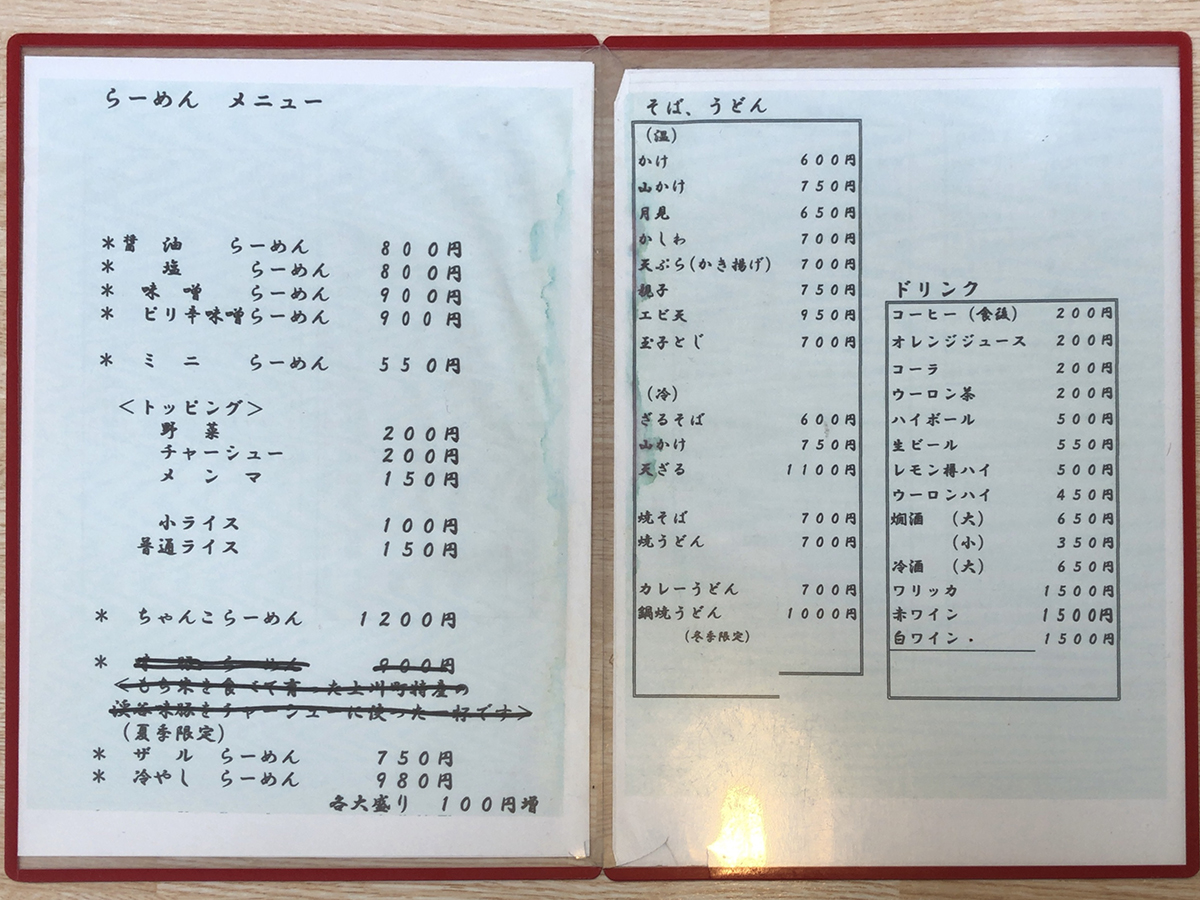 らーめん メニュー
＊醤 油 らーめん 800円
＊ 塩 らーめん 800円
＊ 味 噌 らーめん 900円
＊ ピリ辛味噌らーめん 900円
＊ ミ ニ らーめん 550円
＜トッピング＞
野 菜 200円
チャーシュー 200円
メ ン マ 150円
小ライス 100円
普通ライス 150円
＊ ちゃんこらーめん 1200円
＊ 味 豚 らーめん 900円
＜もち米を食べて育った上川町特産の
渓谷味豚をチャーシューに使った一杯です＞
（夏季限定）
＊ ザ ル らーめん 750円
＊ 冷やし らーめん 980円
各大盛り 100円増
そば、うどん
（温）
かけ 600円
山かけ 750円
月見 650円
かしわ 700円
天ぷら(かき揚げ) 700円
親子 750円
エビ天 950円
玉子とじ 700円
（冷）
ざるそば 600円
山かけ 750円
天ざる 1100円
焼そば 700円
焼うどん 700円
カレーうどん 700円
鍋焼うどん 1000円
（冬季限定）
ドリンク
コーヒー（食後） 200円
オレンジジュース 200円
コーラ 200円
ウーロン茶 200円
ハイボール 500円
生ビール 550円
レモン樽ハイ 500円
ウーロンハイ 450円
燗酒 （大） 650円
（小） 350円
冷酒 （大） 650円
ワリッカ 1500円
赤ワイン 1500円
白ワイン・ 1500円